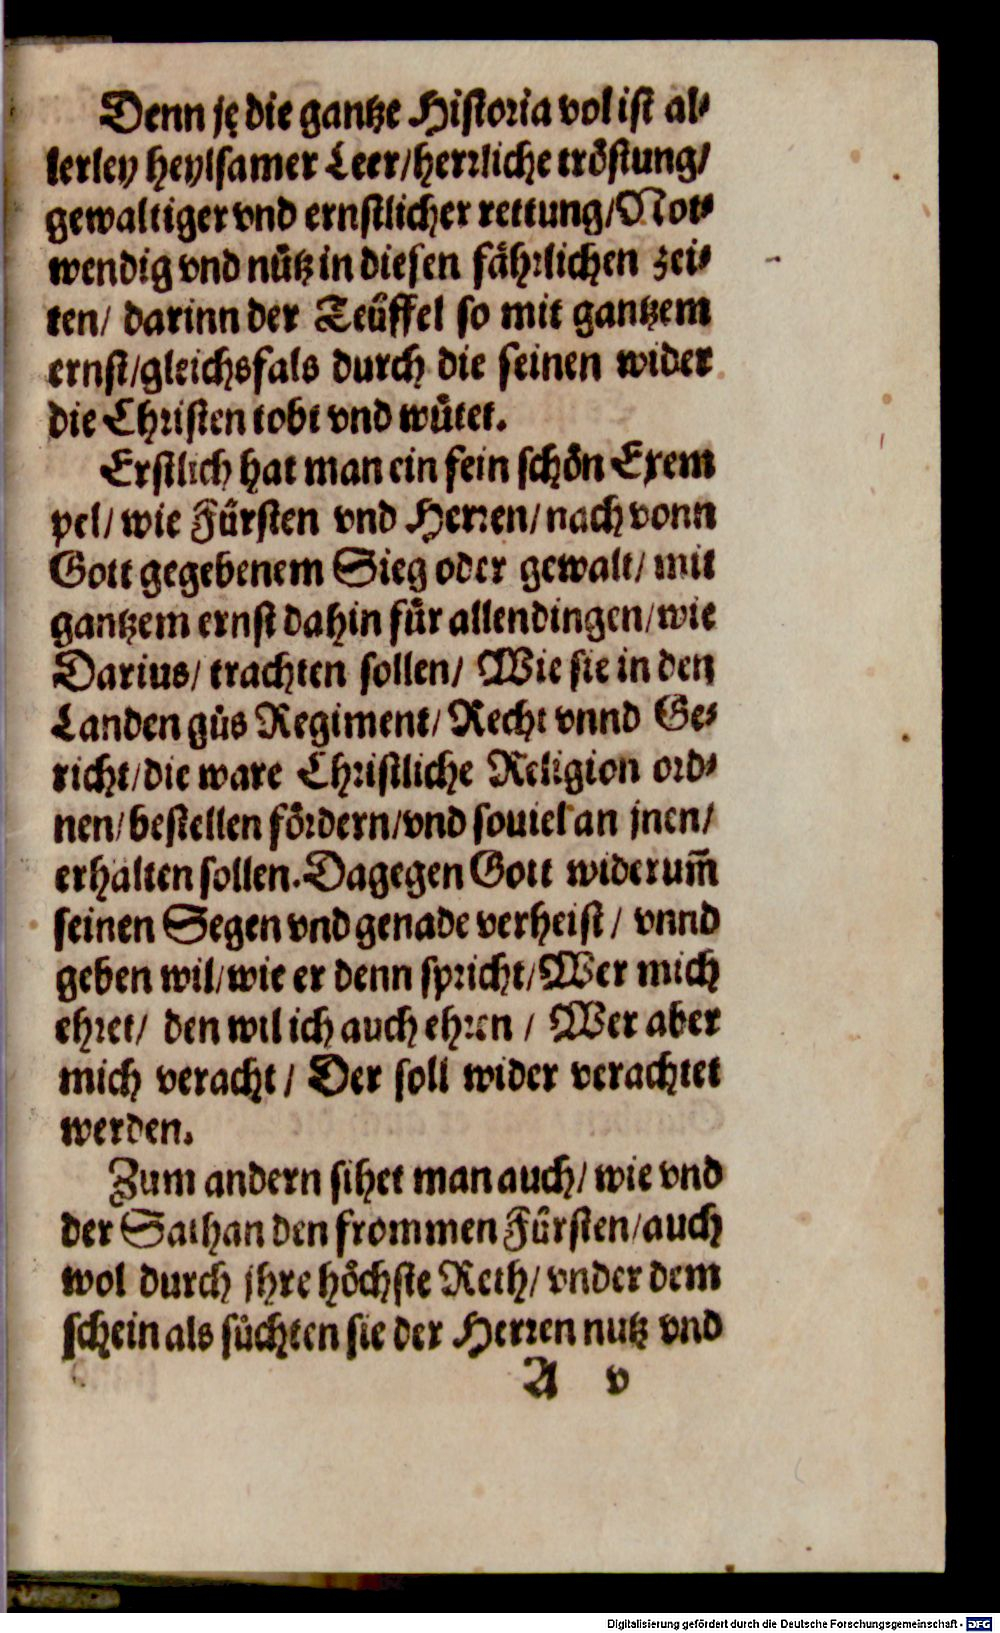 Denn je die gantze Historia vol ist al⸗
lerley heylsamer Leer/herrliche tröstung/
gewaltiger vnd ernstlicher rettung/Not⸗
wendig vnd nütz in diesen fährlichen zei⸗
ten/ darinn der Teüffel so mit gantzem
ernst/gleichsfals durch die seinen wider
die Christen tobt vnd wütet.
Erstlich hat man ein fein schön Exem
pel/ wie Fürsten vnd Herren/ nach vonn
Gott gegebenem Sieg oder gewalt/ mit
gantzem ernst dahin für allendingen/wie
Darius/ trachten sollen/ Wie sie in den
Landen güs Regiment/ Recht vnnd Ge⸗
richt/die ware Christliche Religion ord⸗
nen/bestellen fördern/vnd souiel an jnen/
erhalten sollen. Dagegen Gott widerum̃
seinen Segen vnd genade verheist/ vnnd
geben wil/wie er denn spricht/Wer mich
ehret/ den wil ich auch ehren / Wer aber
mich veracht/ Der soll wider verachtet
werden.
Zum andern sihet man auch/ wie vnd
der Sathan den frommen Fürsten/auch
wol durch jhre höchste Reth/ vnder dem
schein als süchten sie der Herren nutz vnd
A v
Digitalisierung gefördert durch die Deutsche Forschungsgemeinschaft - DFG